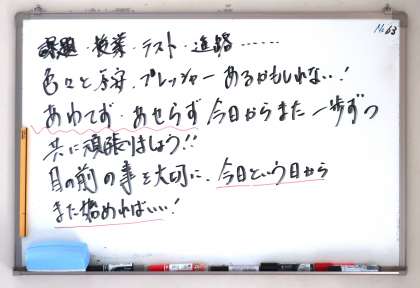 No 63
課題・授業・テスト・進路……
色々と不安、プレッシャーあるかもしれない…!
あわてず・あせらず 今日からまた一歩ずつ
共に頑張りましょう!!
目の前の事を大切に、今日という日から
また始めればいい…!